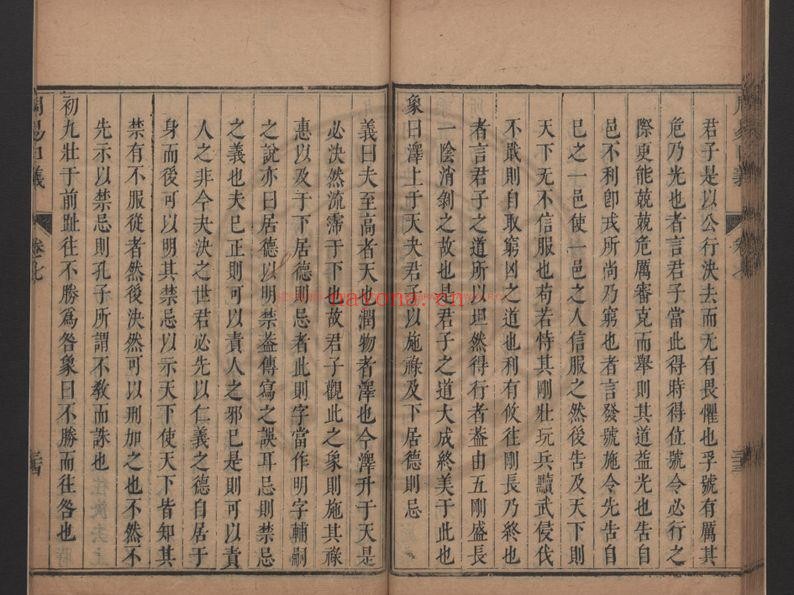 君子是以公行決去而无有畏懼也孚號有厲其
危乃光也者言君子當此得時得位號令必行之
際更能兢兢危厲審克而舉則其道益光也告自
邑不利即戎所尚乃窮也者言發號施令先告自
巳之一邑使一邑之人信服之然後告及天下則
天下无不信服也苟若恃其剛壯玩兵黷武侵伐
不戢則自取窮凶之道也利有攸往剛長乃終也
者言君子之道所以坦然得行者葢由五剛盛長
一陰消剝之故也是君子之道大成終美于此也
象曰澤上于天夬君子以施祿及下居德則忌
義曰夫至高者天也潤物者澤也今澤升于天是
必決然流霈于下也故君子觀此之象則施其祿
惠以及于下居德則忌者此則字當作明字輔嗣
之說亦曰居德以明禁葢傳寫之誤耳忌則禁忌
之義也夫巳正則可以責人之邪巳是則可以責
人之非今夬決之世君必先以仁義之德自居于
身而後可以明其禁忌以示天下使天下皆知其
禁有不服從者然後決然可以刑加之也不然不
先示以禁忌則孔子所謂不教而誅也
初九壯于前趾往不勝爲咎象曰不勝而往咎也
周易口義
卷七
三西
naxona.cn